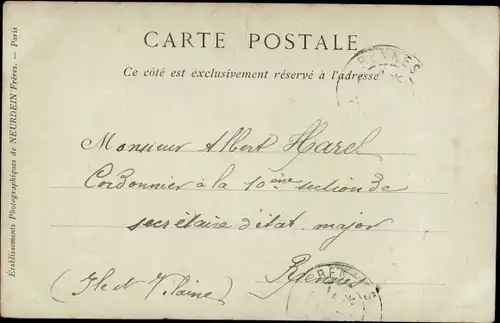 CARTE POSTALE
Ce côté est exclusivement réservé à l'adresse
RENNES
Monsieur Albert Harel
Cordonnier à la 10ème section de
secrétaire d'état major
Rennes
(Ile et Vilaine)
RENNES
Etablissements Photographiques de NEURDEIN Frères. — Paris